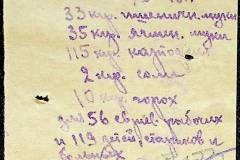 33 клр. пшеничн. муки
35 клр. ячмен. муки
115 клр. картофел
2 клр. соли
10 клр. горох
для 56 евреев-рабочих
и 119 детей, стариков и
больных